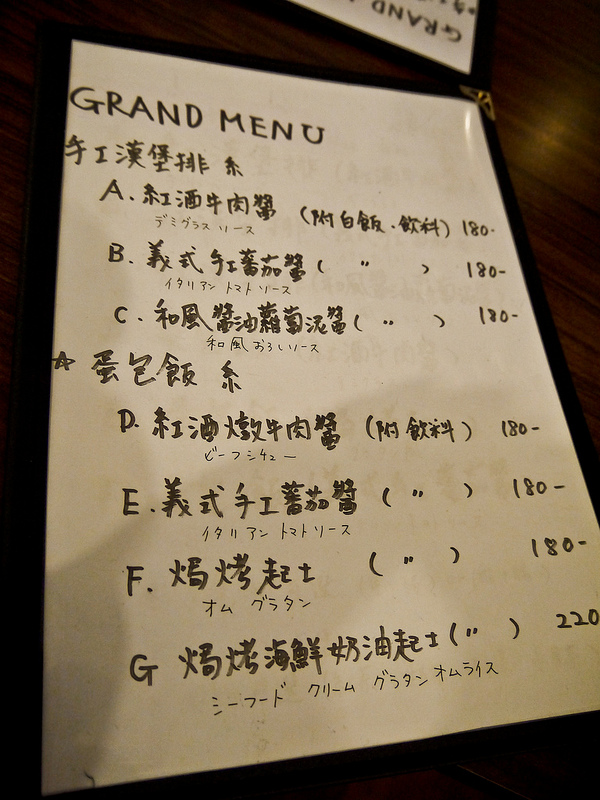 GRAND M
GRAND MENU
手工漢堡排系
A.紅酒牛肉醬 (附白飯·飲料) 180-
デミグラス ソース
B.義式手工蕃茄醬( 〃 ) 180-
イタリアン トマト ソース
C.和風醬油蘿蔔泥醬( 〃 ) 180-
和風 おろしソース
☆ 蛋包飯系
D.紅酒燉牛肉醬 (附飲料) 180-
ビーフシチュー
E.義式手工蕃茄醬 ( 〃 ) 180-
イタリアン トマトソース
F.焗烤起士 ( 〃 ) 180-
オム グラタン
G 焗烤海鮮奶油起士( 〃 ) 220
シーフード クリーム グラタン オムライス